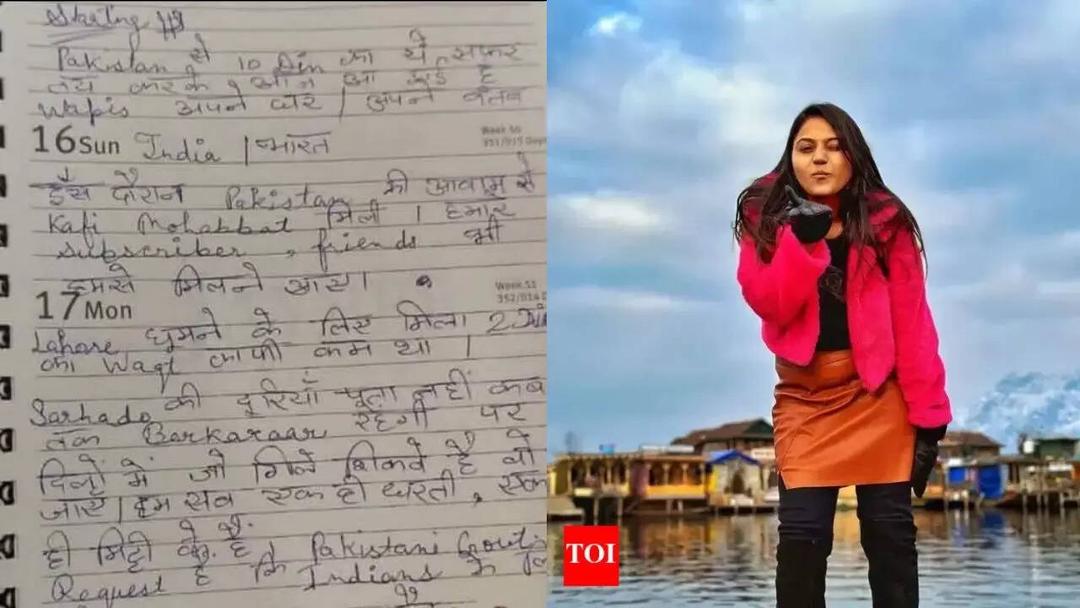 Pakistan से 10 Din का ये सफर
तय करके आज आ गई है
Wapis अपने घर | अपने वतन
16 Sun India | भारत
Week 50
इस दौरान Pakistan की आवाम से
Kafi Mohabbat मिली । हमारे
subscriber, friends भी
हमसे मिलने आए।
17 Mon
Week 51
Lahore घूमने के लिए मिला 2 Din
का Waqt काफी कम था ।
Sarhado की दूरियाँ पता नहीं कब
तक Barkaraar रहेगी पर
दिलों में जो गिले शिकवे है वो
जाए। हम सब एक ही धरती, एक
ही मिट्टी के है।
Pakistani Govt.
Request है कि Indians के
TOI